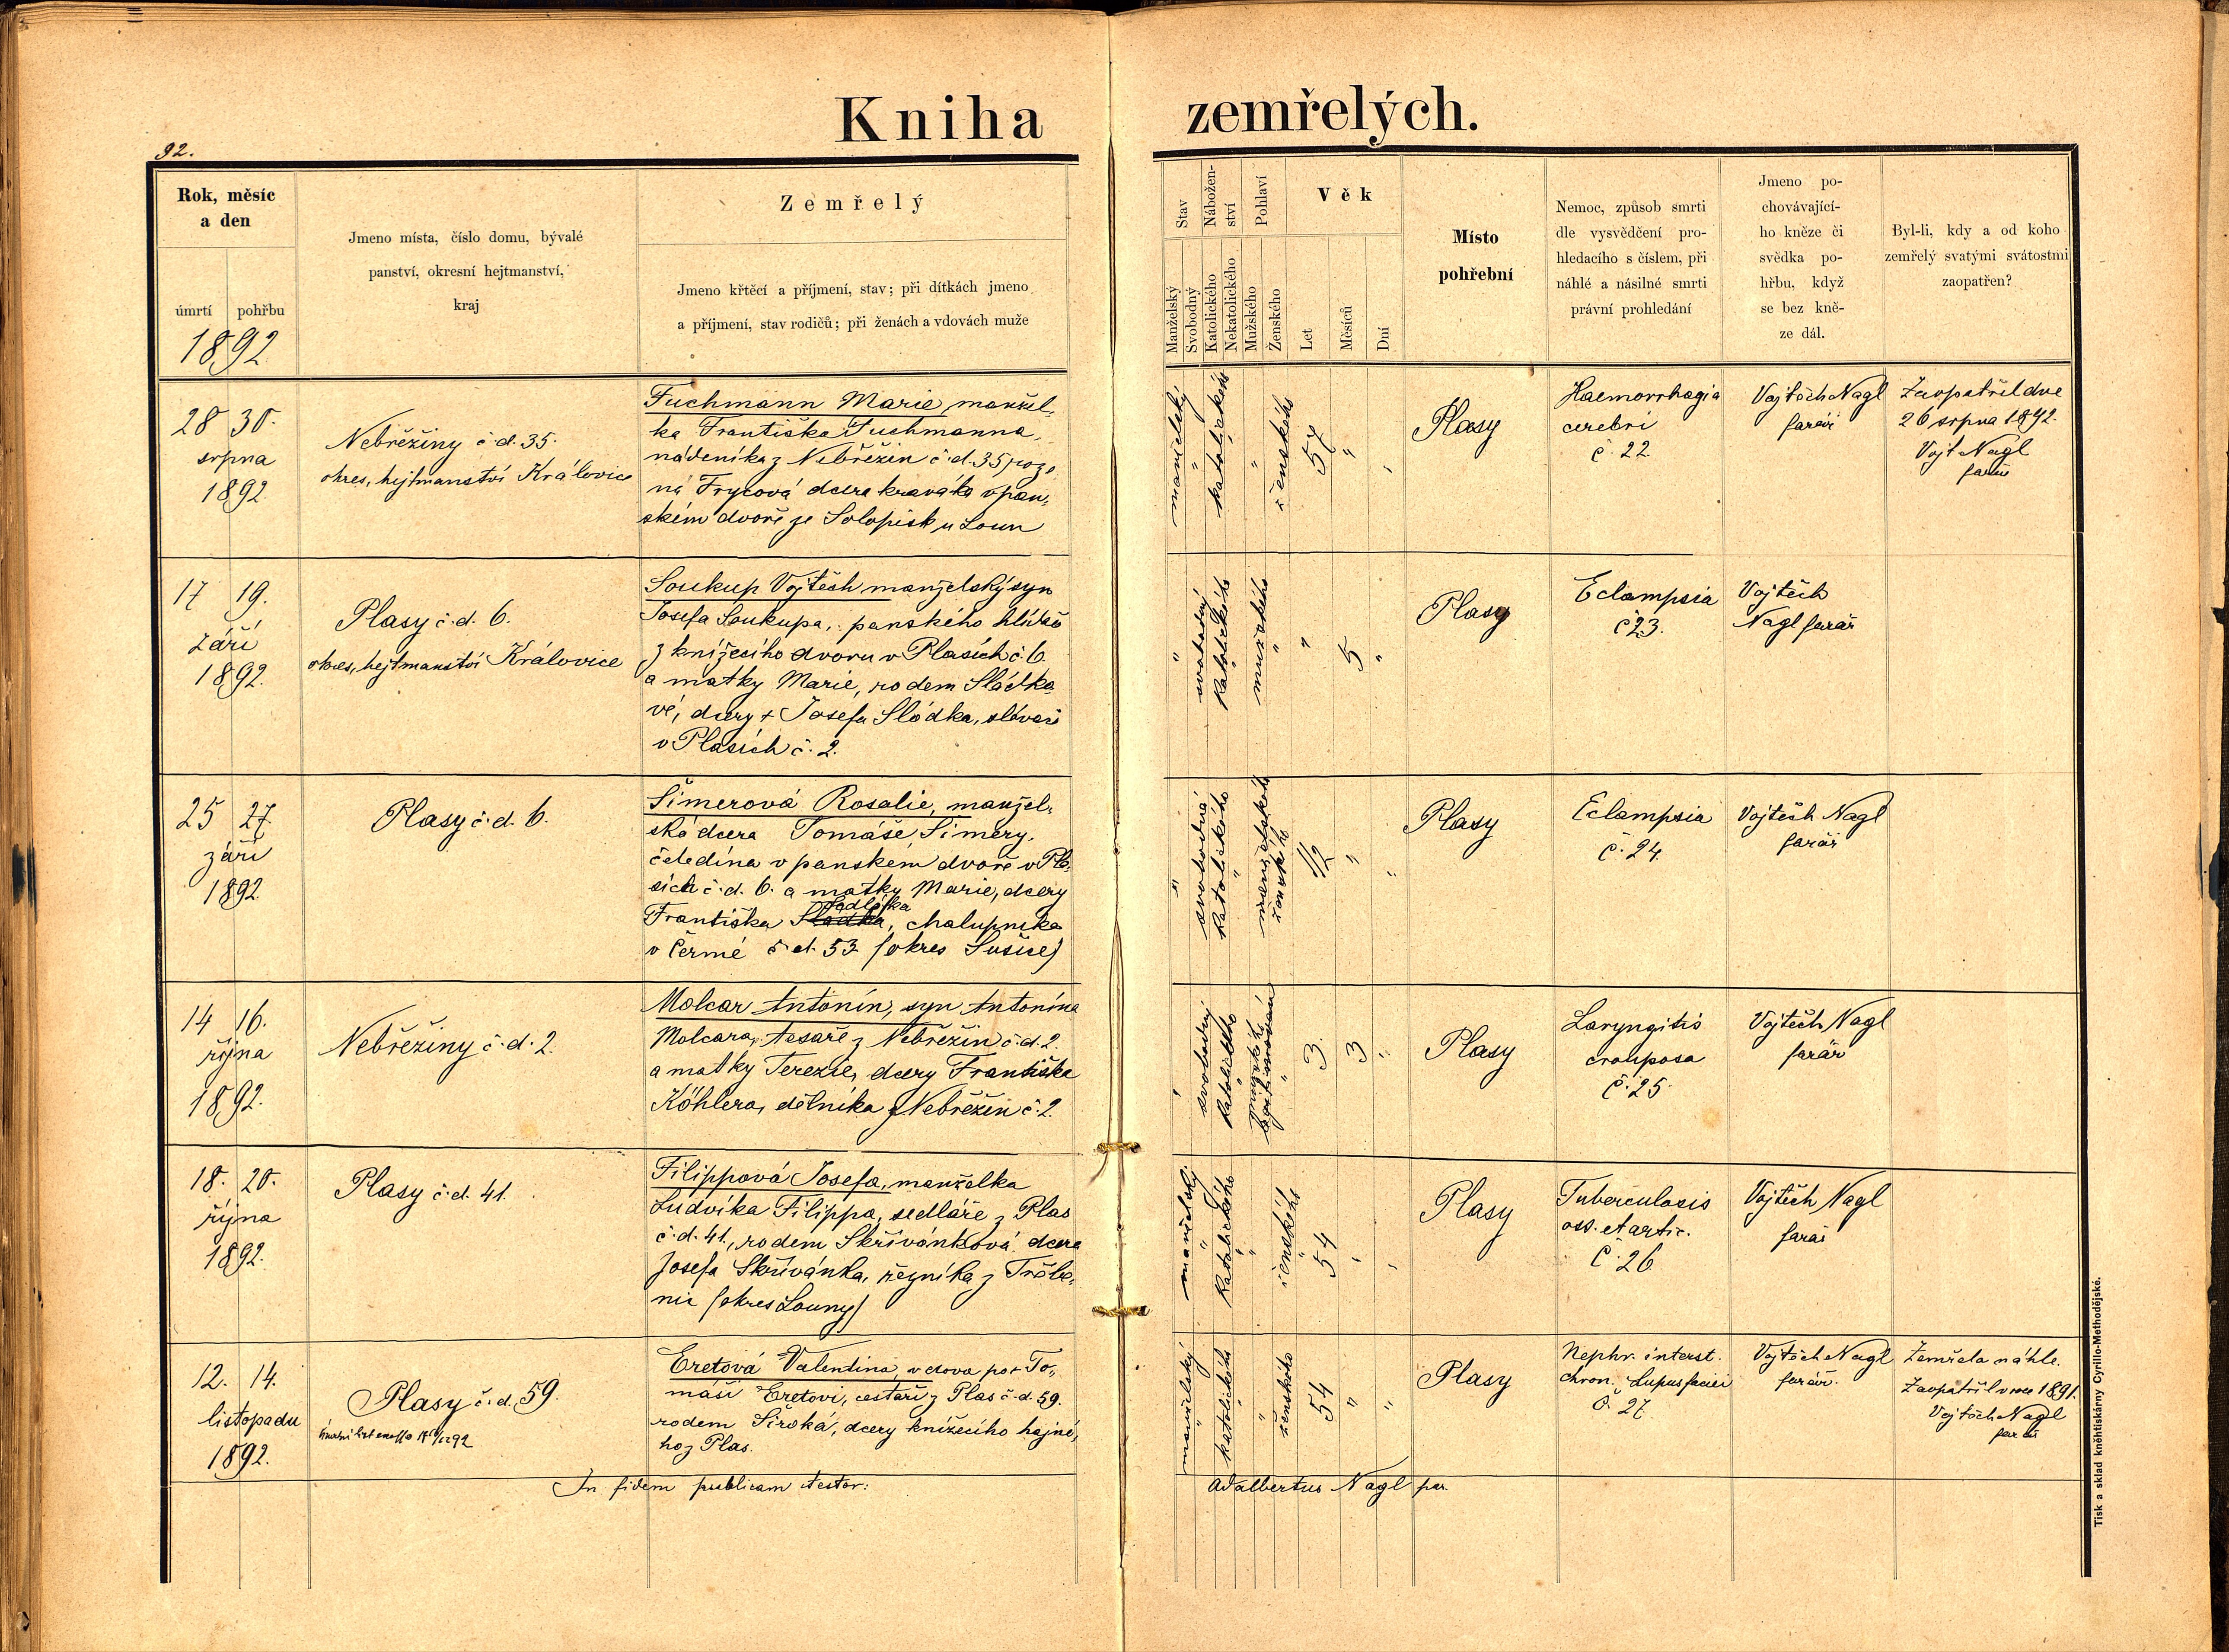 Kniha zemřelých.
92.
Rok, měsíc
a den
úmrtí pohřbu
1892
Jmeno místa, číslo domu, bývalé
panství, okresní hejtmanství,
kraj
Zemřelý
Jmeno křtěcí a příjmení, stav; při dítkách jmeno
a příjmení, stav rodičů; při ženách a vdovách muže
Stav
Manželský
Svobodný
Nábožen-
ství
Katolického
Nekatolického
Pohlaví
Mužského
Ženského
Věk
Let
Měsíců
Dní
Místo
pohřební
Nemoc, způsob smrti
dle vysvědčení pro-
hledacího s číslem, při
náhlé a násilné smrti
právní prohledání
Jmeno po-
chovávající-
ho kněze či
svědka po-
hřbu, když
se bez kně-
ze dál.
Byl-li, kdy a od koho
zemřelý svatými svátostmi
zaopatřen?
28 30.
srpna
1892
Nebřežiny č.d. 35.
okres, hejtmanství Královice
Fuchmann Marie, manžel-
ka Františka Fuchmanna,
nádeníka z Nebřežin č.d. 35, roze-
ná Frycová dcera kraváka v pan-
ském dvoře ze Solopisk u Loun
manželský
"
katolického
"
ženského
57
"
"
Plasy
Haemorrhagia
cerebri
č. 22.
Vojtěch Nagl
farář
Zaopatřil dne
26 srpna 1892.
Vojt Nagl
farář
17 19.
září
1892.
Plasy č.d. 6.
okres, hejtmanství Královice
Soukup Vojtěch manželský syn
Josefa Soukupa, panského hlídače
z knížecího dvoru v Plasích č. 6.
a matky Marie, rodem Sládko
vé, dcery + Josefa Sládka, slévače
v Plasích č. 2.
"
svobodný
katolického
mužského
"
"
5
"
Plasy
Eclampsia
č 23.
Vojtěch
Nagl farář
25 27.
září
1892.
Plasy č.d. 6.
Šimerová Rosalie, manžel-
ská dcera Tomáše Šimery,
čeledína v panském dvoře v Pla-
sích č.d. 6. a matky Marie, dcery
Sadlíka
Františka Sládka, chalupníka
v Čermé č.d. 53 (okres Sušice)
"
svobodná
katolického
"
ženského
1/2
"
"
Plasy
Eclampsia
č. 24.
Vojtěch Nagl
farář
14 16.
října
1892.
Nebřežiny č.d. 2.
Molcar Antonín, syn Antonína
Molcara, tesaře z Nebřežin č.d. 2.
a matky Terezie, dcery Františka
Köhlera, dělníka z Nebřežin č. 2.
"
svobodný
katolického
mužského
legitimován
3.
3
"
Plasy
Laryngitis
crouposa
č. 25
Vojtěch Nagl
farář
18. 20.
října
1892.
Plasy č.d. 41.
Filippová Josefa, manželka
Ludvíka Filippa, sedláře z Plas
č.d. 41., rodem Skřivánková dcera
Josefa Skřivánka, řezníka z Třebe-
nic (okres Louny)
manželský
"
katolického
"
ženského
54
"
"
Plasy
Tuberculosis
oss. et artic.
č. 26
Vojtěch Nagl
farář
12. 14.
listopadu
1892.
Plasy č.d. 59.
Eretová Valentina, vdova po + To-
máši Eretovi, cestáři z Plas č.d. 59.
rodem Široká, dcery knížecího hajné-
ho z Plas.
manželský
"
katolického
"
ženského
54
"
"
Plasy
Nephr. interst.
chron. Lupus faciei
č. 27.
Vojtěch Nagl
farář.
Zemřela náhle.
Zaopatřil v roce 1891.
Vojtěch Nagl
farář
In fidem publicam testor: Adalbertus Nagl par.
Tisk a sklad kněhtiskárny Cyrillo-Methodějské.